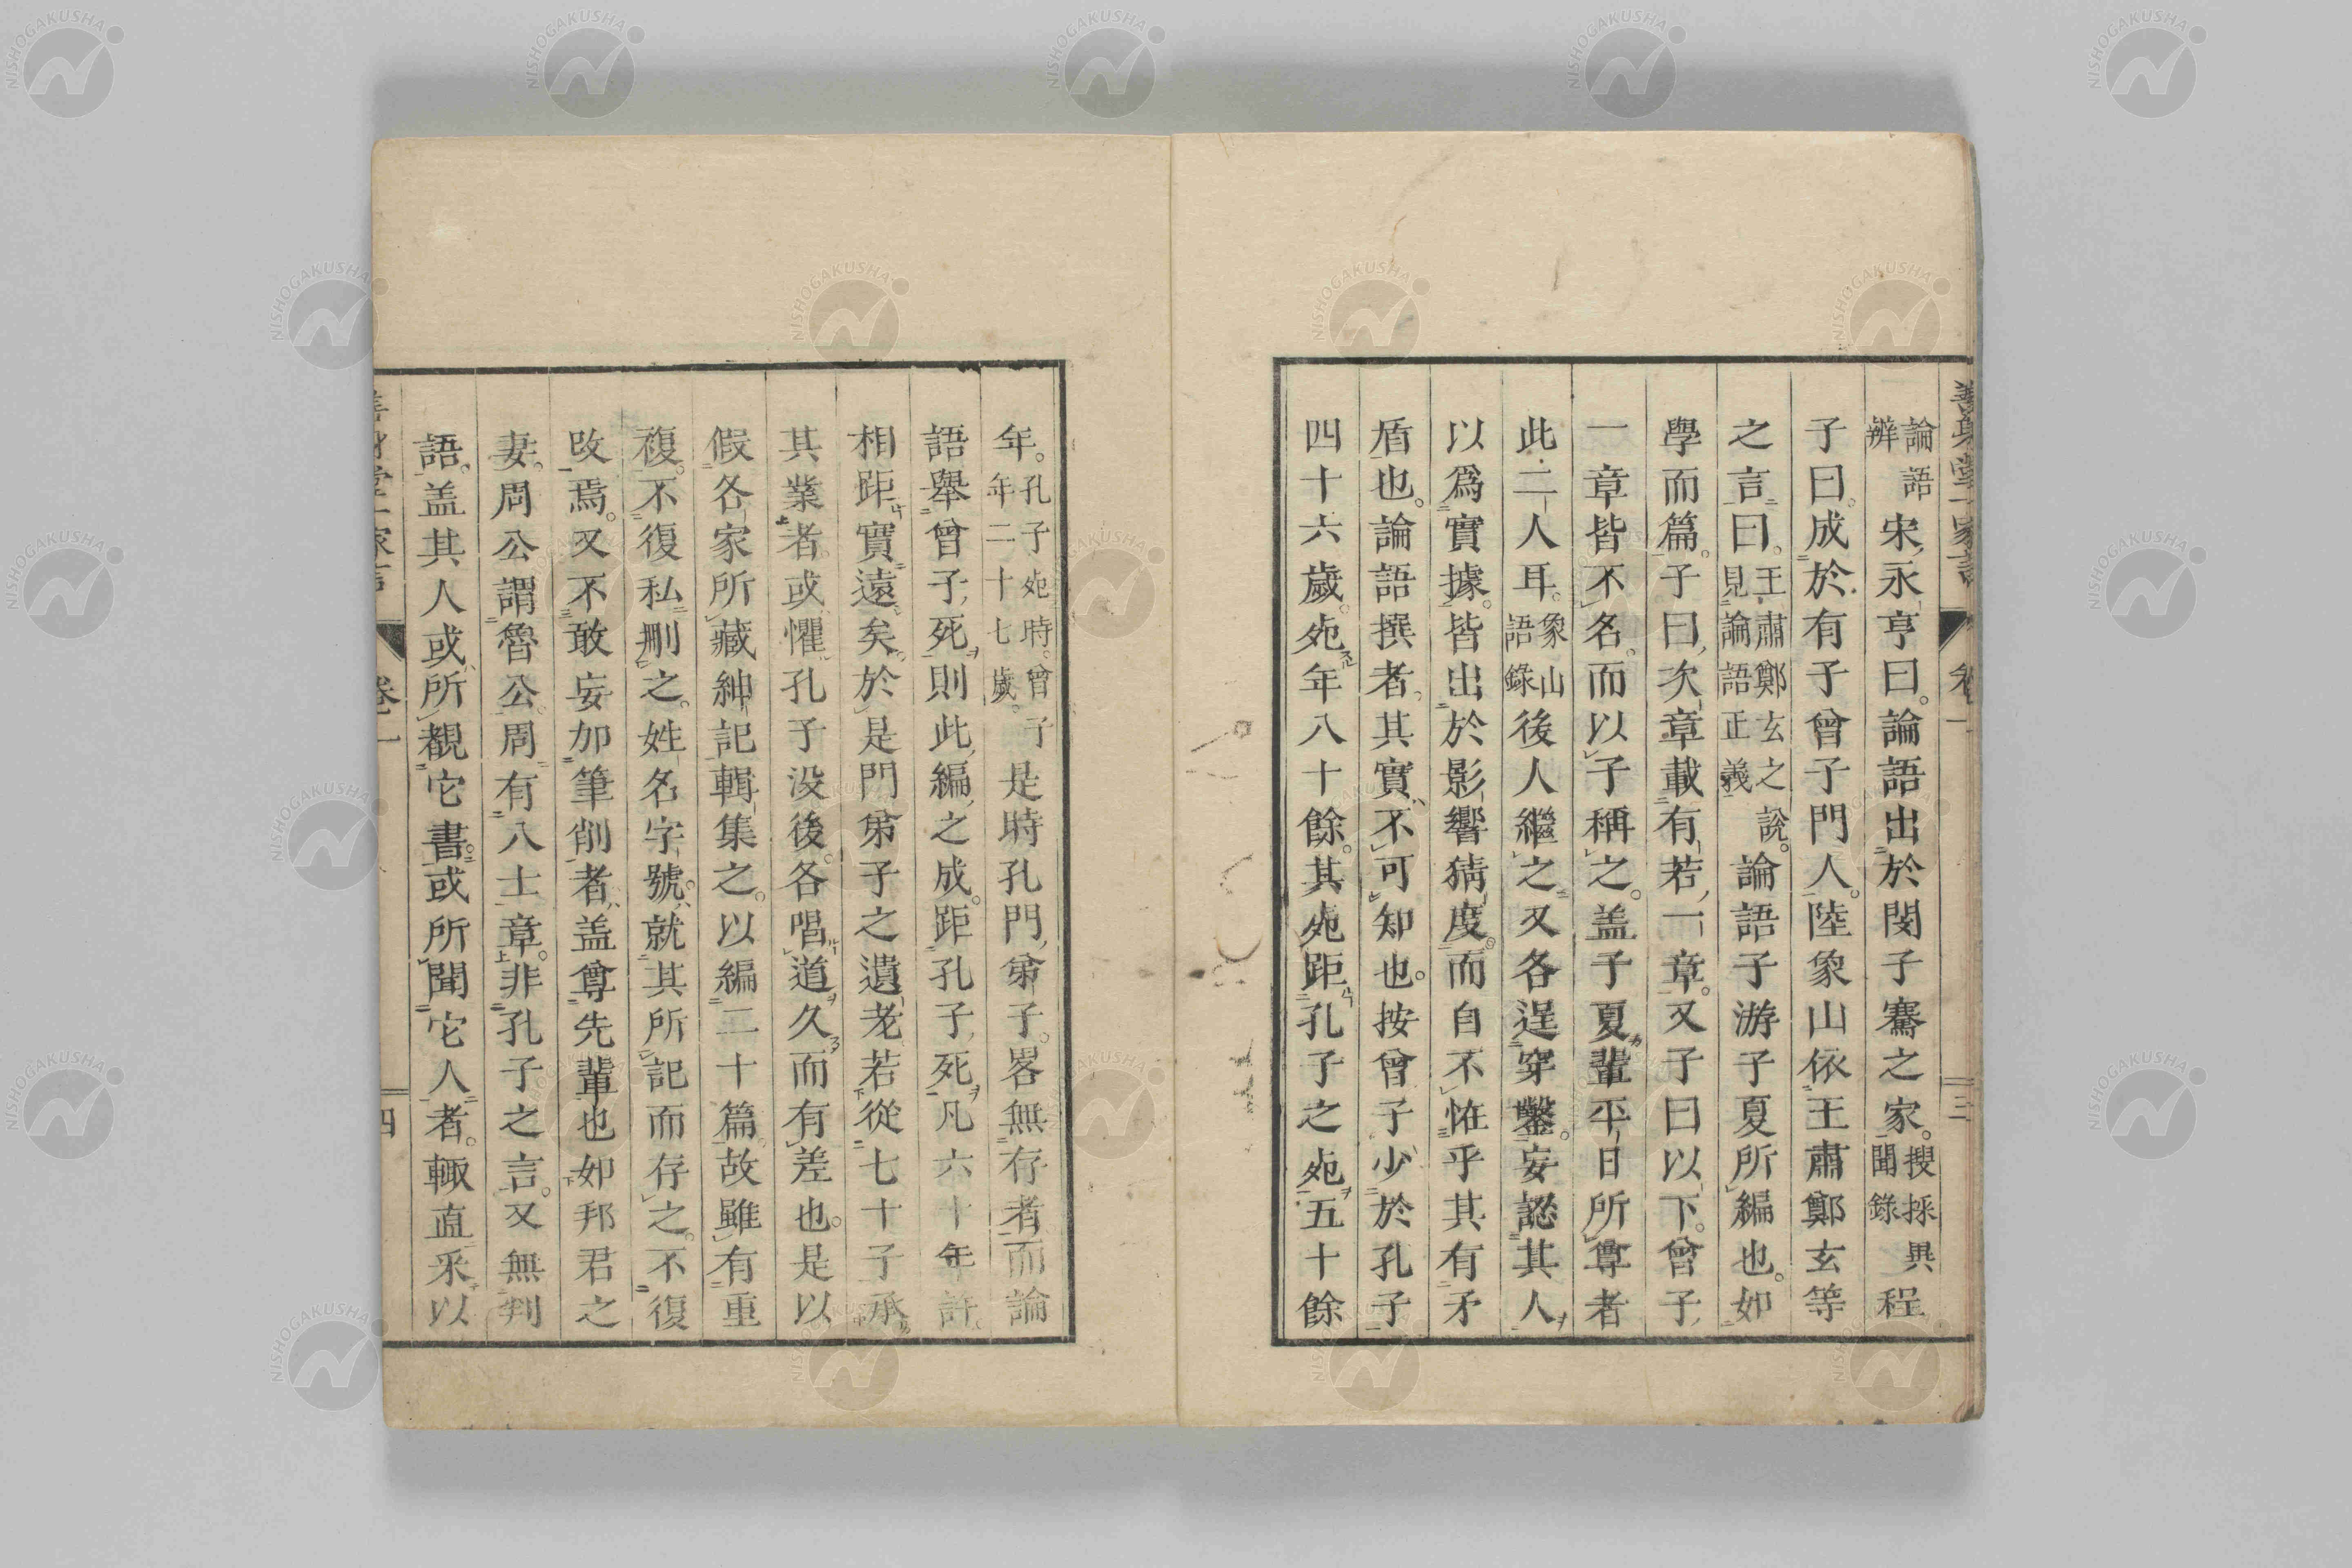 論語辨 宋永亨曰。論語出於閔子騫之家。搜採異聞錄 程
子曰。成於有子曾子門人。陸象山依王肅鄭玄等
之言曰。王肅鄭玄之說。見論語正義 論語子游子夏所編也。如
學而篇。子曰次章載有若一章。又子曰以下。曾子
一章皆不名。而以子稱之。盖子夏輩平日所尊者
此二人耳。象山語錄 後人繼之又各逞穿鑿。妄認其人
以爲實據。皆出於影響猜度。而自不恠乎其有矛
盾也。論語撰者。其實不可知也。按曾子少於孔子
四十六歲。𣦸年八十餘。其𣦸距孔子之𣦸五十餘
年。孔子𣦸時。曾子年二十七歲。 是時孔門弟子。畧無存者。而論
語舉曾子死。則此編之成。距孔子死凡六十年許。
相距實遠矣。於是門弟子之遺老若從七十子承
其業者。或懼孔子没後。各唱道久而有差也。是以
假各家所藏紳記輯集之。以編二十篇。故雖有重
複。不復私刪之。姓名字號。就其所記而存之。不復
改焉。又不敢妄加筆削者。盖尊先輩也。如邦君之
妻。周公謂魯公。周有八士章。非孔子之言。又無判
語。盖其人或所觀它書。或所聞它人者。輙直采以
卷一
三
卷一
四
NISHOGAKUSHA